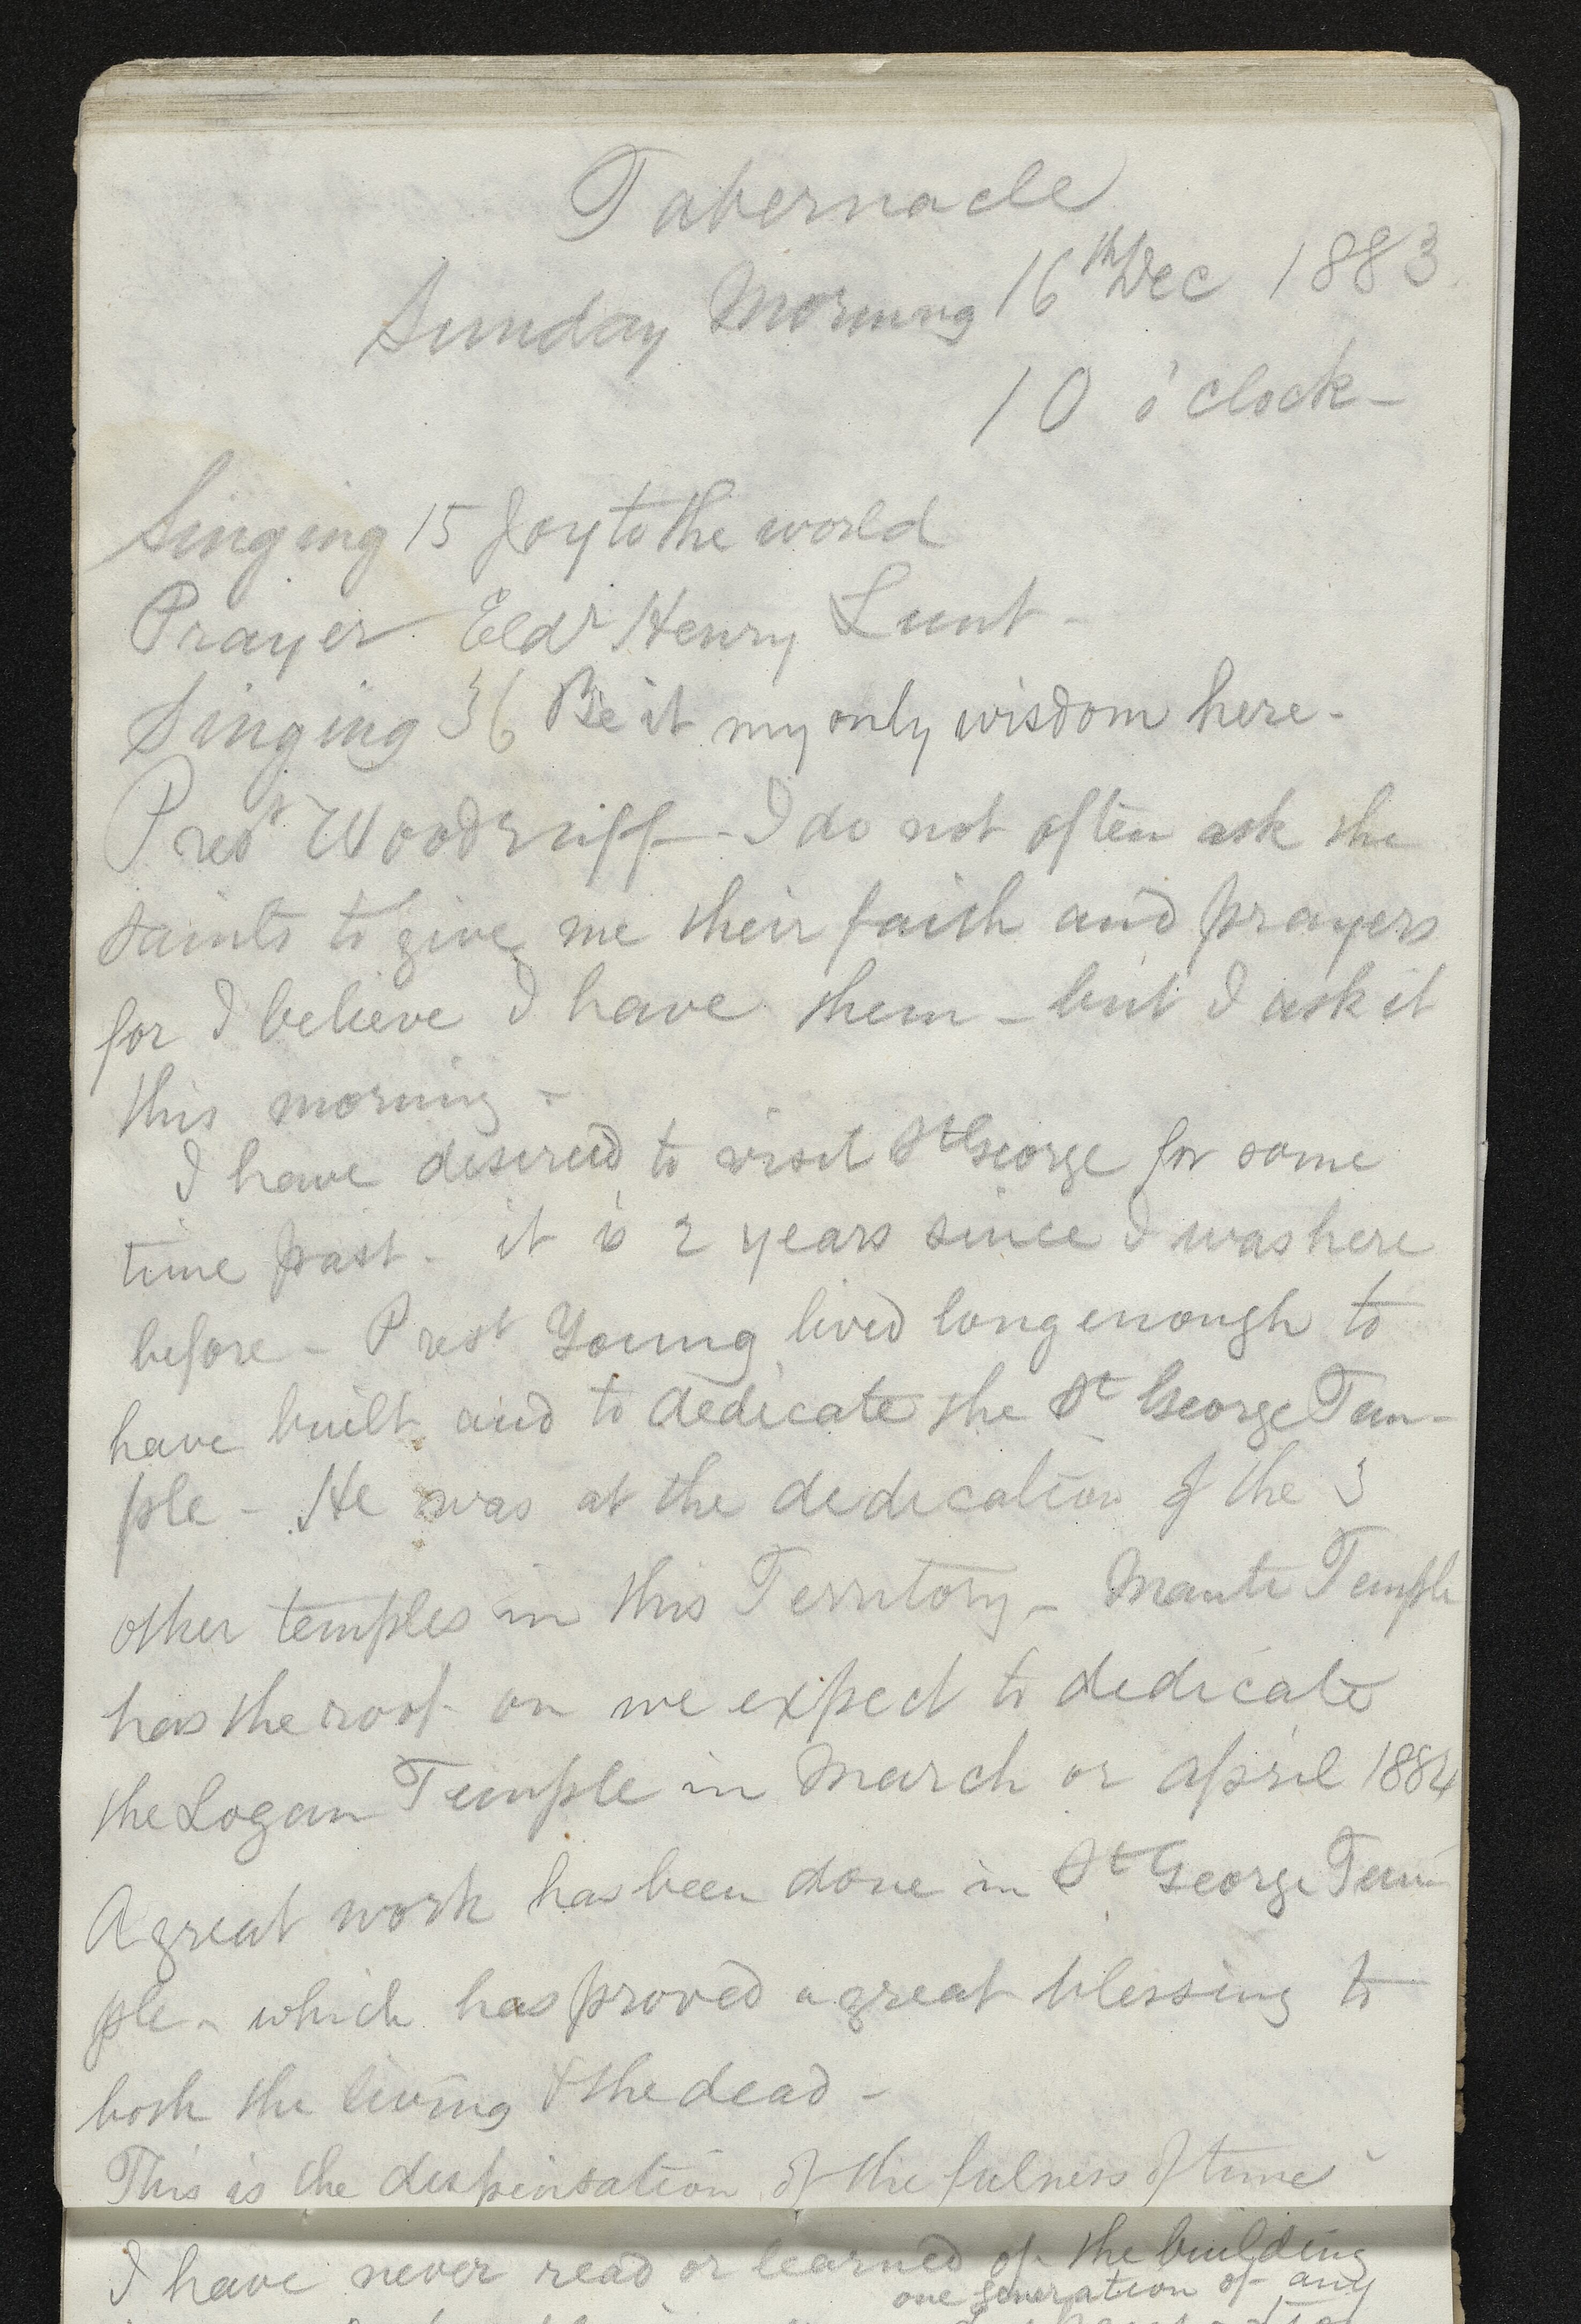 Tabernacle
Sunday Morning 16th Dec 1883
10 o'clock -
Singing 15 Joy to the world
Prayer Eldr Henry Lunt -
Singing 36 Be it my only wisdom here -
Prest Woodruff - I do not often ask the
saints to give me their faith and prayers
for I believe I have them - but I ask it
this morning -
I have desired to visit St George for some
time past - it is 2 years since I was here
before - Prest Young lived long enough to
have built and to dedicate the St George Tem-
ple - He was at the dedication of the 3
other temples in this Territory - Manti Temple
has the roof on we expect to dedicate
the Logan Temple in March or April 1884
A great work has been done in St George Tem-
ple - which has proved a great blessing to
both the living & the dead -
This is the dispensation of the fulness of times
I have never read or learned of the building
one generation of any